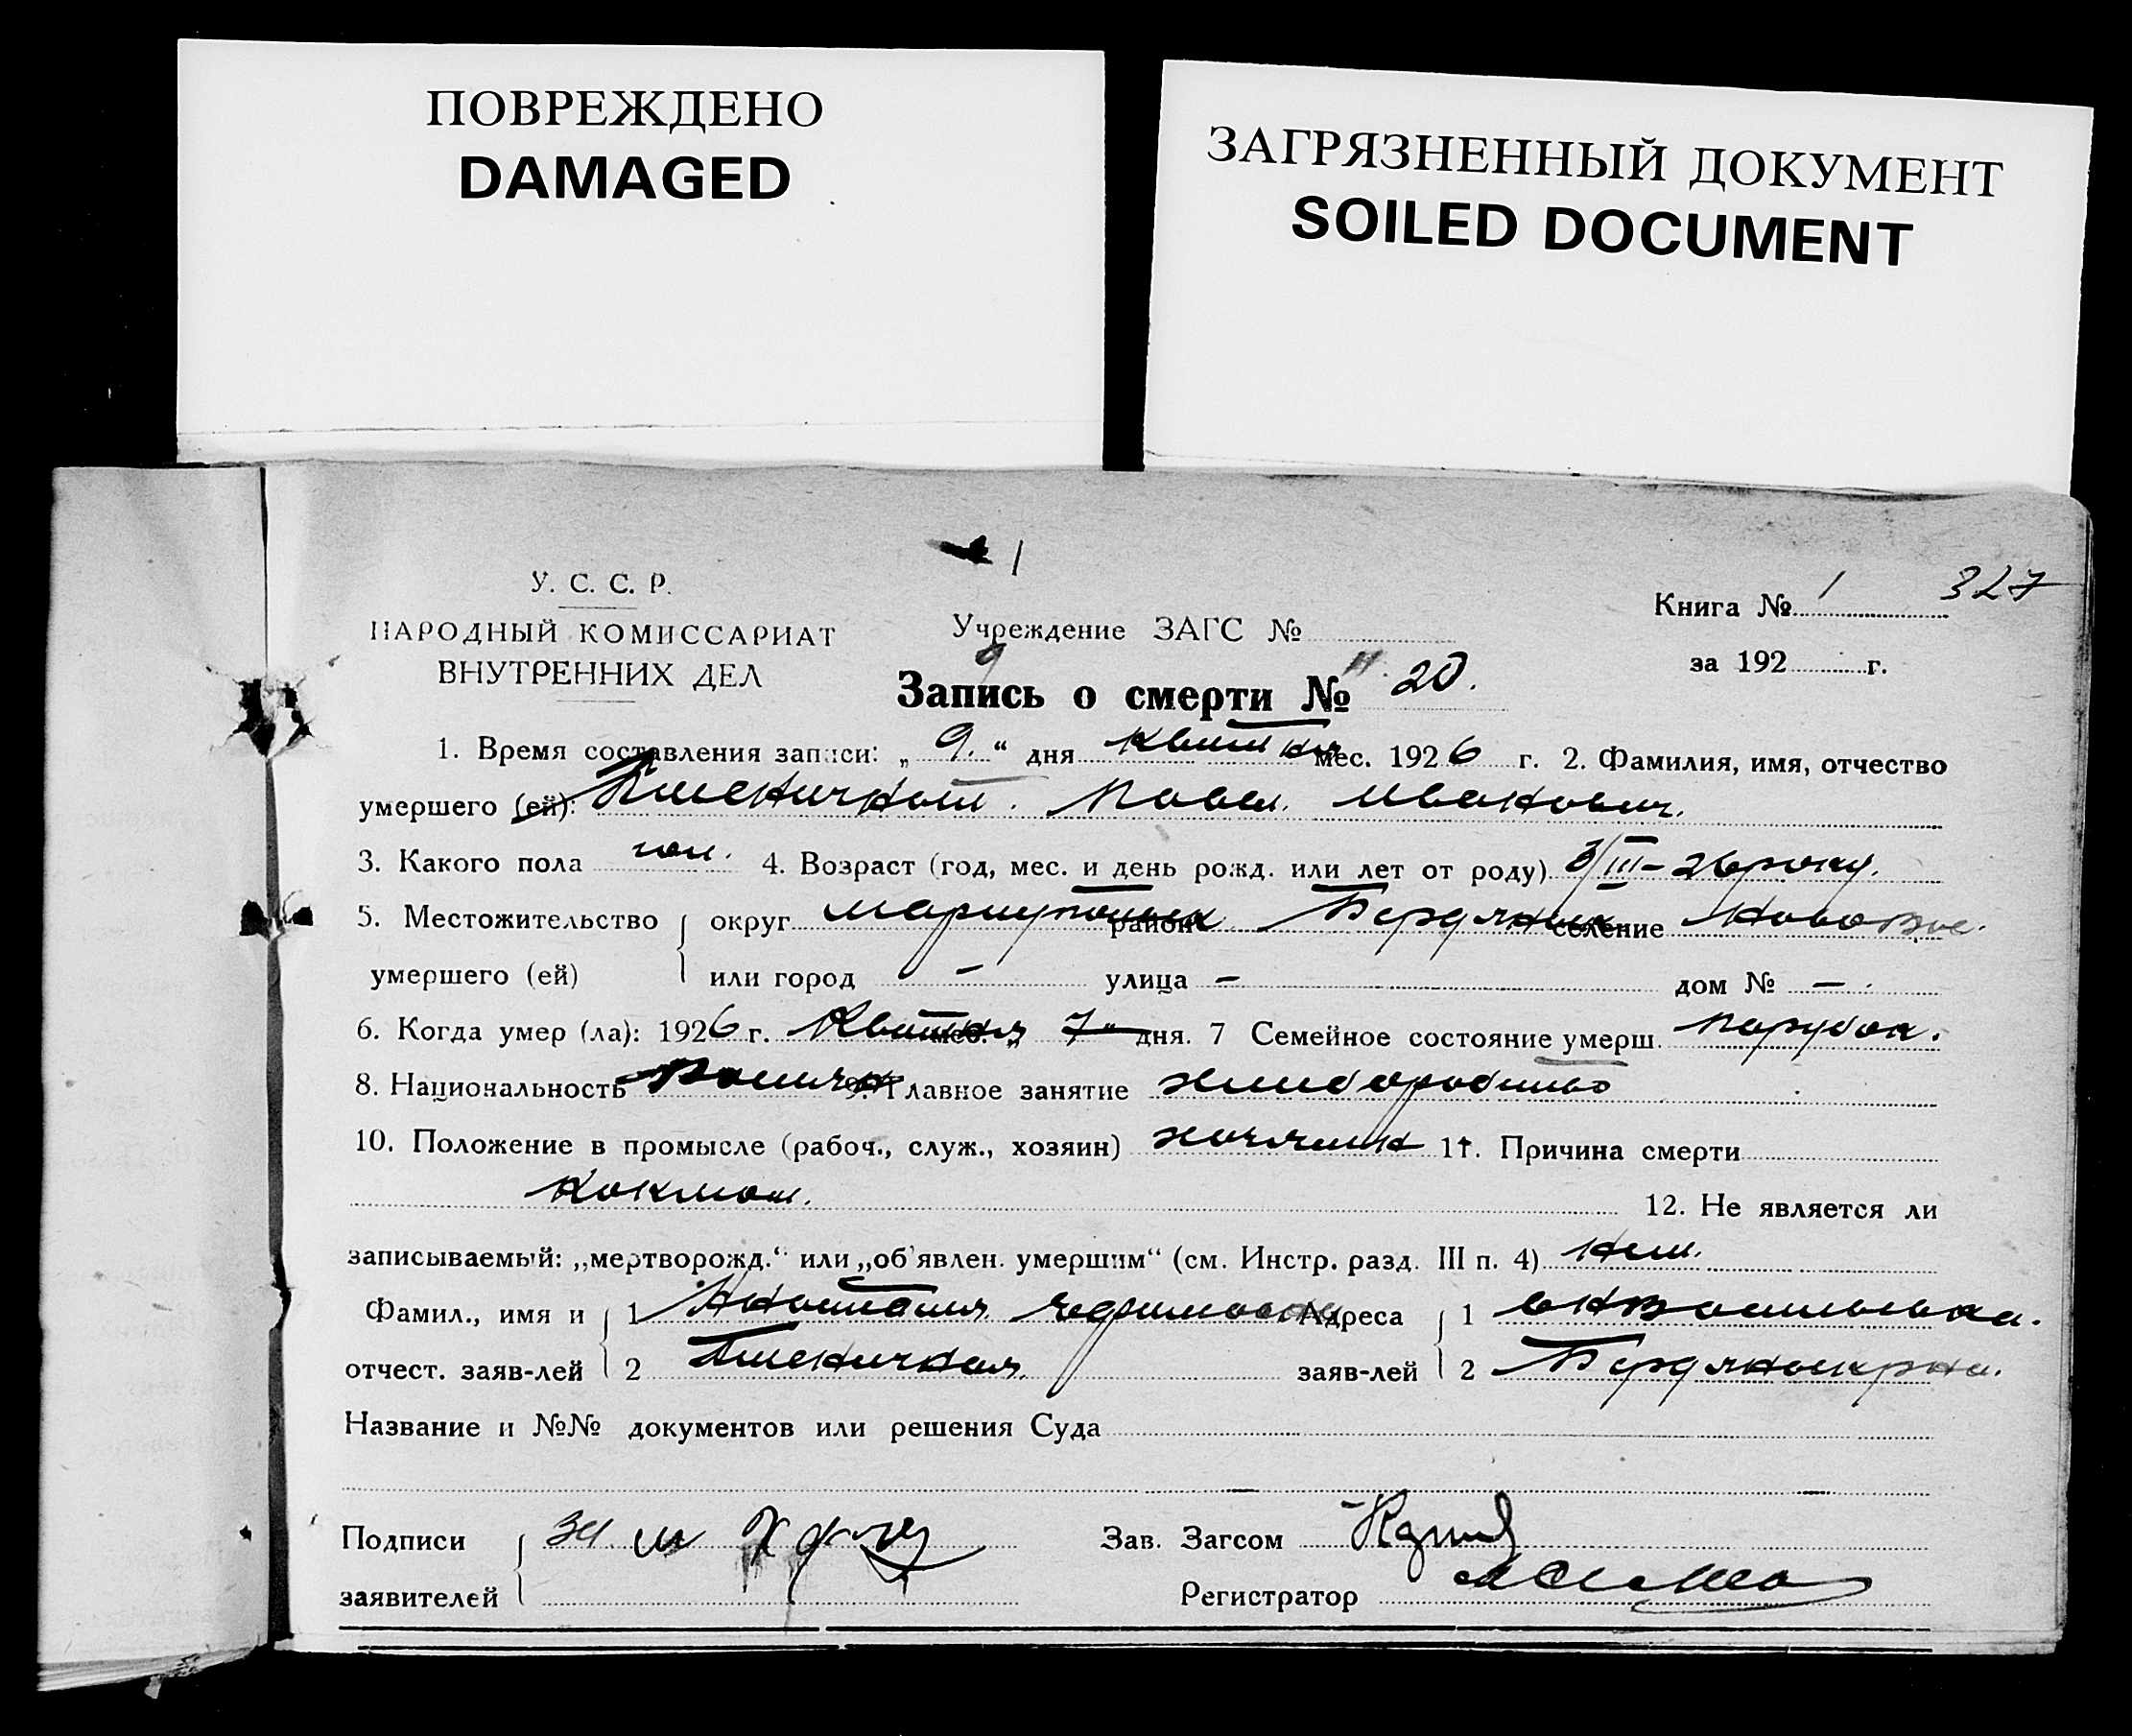 ПОВРЕЖДЕНО
DAMAGED
ЗАГРЯЗНЕННЫЙ ДОКУМЕНТ
SOILED DOCUMENT
1
У. С. С. Р.
НАРОДНЫЙ КОМИССАРИАТ
ВНУТРЕННИХ ДЕЛ
Учреждение ЗАГС №
Книга № 1 327
за 192 г.
Запись о смерти № 20.
1. Время составления записи: „ 9. “ дня Квитня мес. 1926 г. 2. Фамилия, имя, отчество
умершего (ей): Пшеничный Павел Иванович.
3. Какого пола чол. 4. Возраст (год, мес. и день рожд. или лет от роду) 3/III-26 року.
5. Местожительство округ Мариупольск район Бердянськ селение Нововас.
умершего (ей) или город – улица – дом № –
6. Когда умер (ла): 1926 г. Квитня мес. „ 7 “ дня. 7 Семейное состояние умерш. парубок.
8. Национальность 9. Главное занятие хлиборобство
10. Положение в промысле (рабоч., служ., хозяин) 11. Причина смерти
Коклюш.
12. Не является ли
записываемый: „мертворожд.“ или „об'явлен. умершим“ (см. Инстр. разд. III п. 4)
Фамил., имя и 1 Адреса 1
отчест. заяв-лей 2 Пшенична заяв-лей 2
Название и №№ документов или решения Суда
Подписи Зав. Загсом
заявителей Регистратор